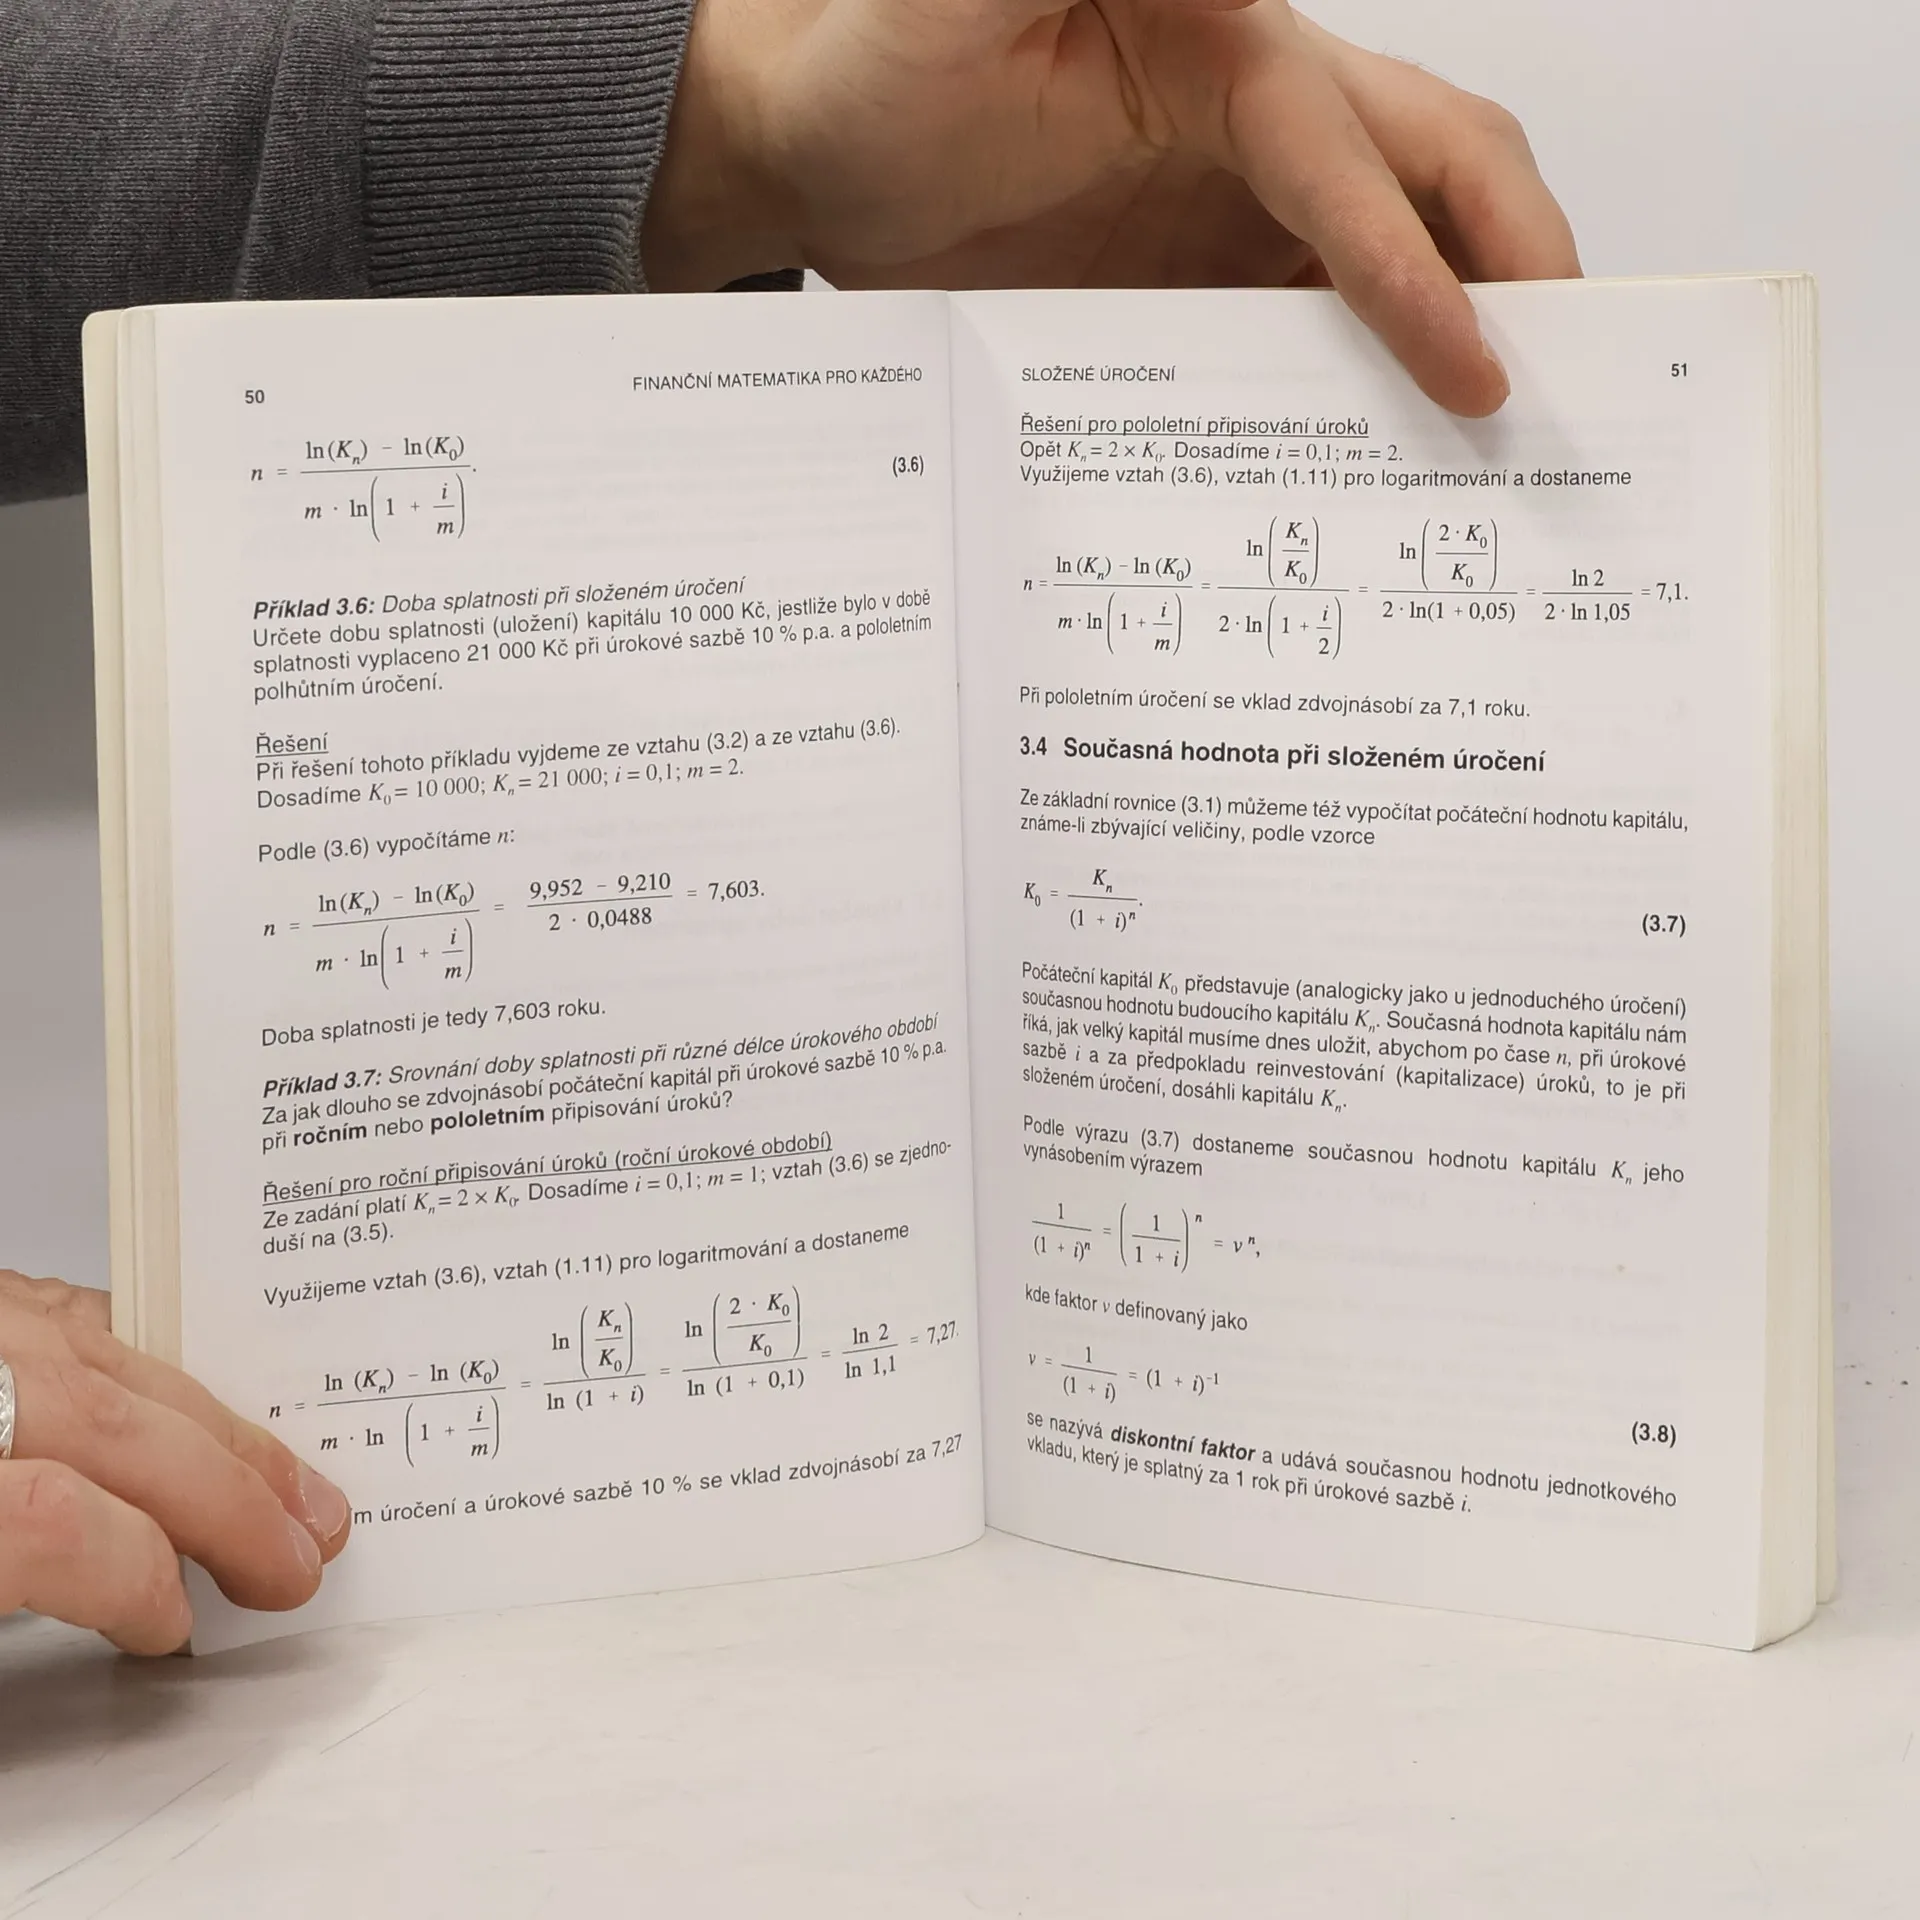 50 FINANČNÍ MATEMATIKA PRO KAŽDÉHO
n = (ln(Kₙ) − ln(K₀)) / (m · ln(1 + i/m)). (3.6)
Příklad 3.6: Doba splatnosti při složeném úročení
Určete dobu splatnosti (uložení) kapitálu 10 000 Kč, jestliže bylo v době
splatnosti vyplaceno 21 000 Kč při úrokové sazbě 10 % p.a. a pololetním
polhůtním úročení.
Řešení
Při řešení tohoto příkladu vyjdeme ze vztahu (3.2) a ze vztahu (3.6).
Dosadíme K₀ = 10 000; Kₙ = 21 000; i = 0,1; m = 2.
Podle (3.6) vypočítáme n:
n = (ln(Kₙ) − ln(K₀)) / (m · ln(1 + i/m)) = (9,952 − 9,210) / (2 · 0,0488) = 7,603.
Doba splatnosti je tedy 7,603 roku.
Příklad 3.7: Srovnání doby splatnosti při různé délce úrokového období
Za jak dlouho se zdvojnásobí počáteční kapitál při úrokové sazbě 10 % p.a.
při ročním nebo pololetním připisování úroků?
Řešení pro roční připisování úroků (roční úrokové období)
Ze zadání platí Kₙ = 2 × K₀. Dosadíme i = 0,1; m = 1; vztah (3.6) se zjedno-
duší na (3.5).
Využijeme vztah (3.6), vztah (1.11) pro logaritmování a dostaneme
n = (ln (Kₙ) − ln (K₀)) / (m · ln (1 + i/m)) = ln (Kₙ/K₀) / ln (1 + i) = ln (2 · K₀/K₀) / ln (1 + 0,1) = ln 2 / ln 1,1 = 7,27.
m úročení a úrokové sazbě 10 % se vklad zdvojnásobí za 7,27
SLOŽENÉ ÚROČENÍ 51
Řešení pro pololetní připisování úroků
Opět Kₙ = 2 × K₀. Dosadíme i = 0,1; m = 2.
Využijeme vztah (3.6), vztah (1.11) pro logaritmování a dostaneme
n = (ln (Kₙ) − ln (K₀)) / (m · ln(1 + i/m)) = ln(Kₙ/K₀) / (2 · ln(1 + i/2)) = ln(2 · K₀/K₀) / (2 · ln(1 + 0,05)) = ln 2 / (2 · ln 1,05) = 7,1.
Při pololetním úročení se vklad zdvojnásobí za 7,1 roku.
3.4 Současná hodnota při složeném úročení
Ze základní rovnice (3.1) můžeme též vypočítat počáteční hodnotu kapitálu,
známe-li zbývající veličiny, podle vzorce
K₀ = Kₙ / (1 + i)ⁿ. (3.7)
Počáteční kapitál K₀ představuje (analogicky jako u jednoduchého úročení)
současnou hodnotu budoucího kapitálu Kₙ. Současná hodnota kapitálu nám
říká, jak velký kapitál musíme dnes uložit, abychom po čase n, při úrokové
sazbě i a za předpokladu reinvestování (kapitalizace) úroků, to je při
složeném úročení, dosáhli kapitálu Kₙ.
Podle výrazu (3.7) dostaneme současnou hodnotu kapitálu Kₙ jeho
vynásobením výrazem
1 / (1 + i)ⁿ = (1 / (1 + i))ⁿ = vⁿ,
kde faktor v definovaný jako
v = 1 / (1 + i) = (1 + i)⁻¹ (3.8)
se nazývá diskontní faktor a udává současnou hodnotu jednotkového
vkladu, který je splatný za 1 rok při úrokové sazbě i.